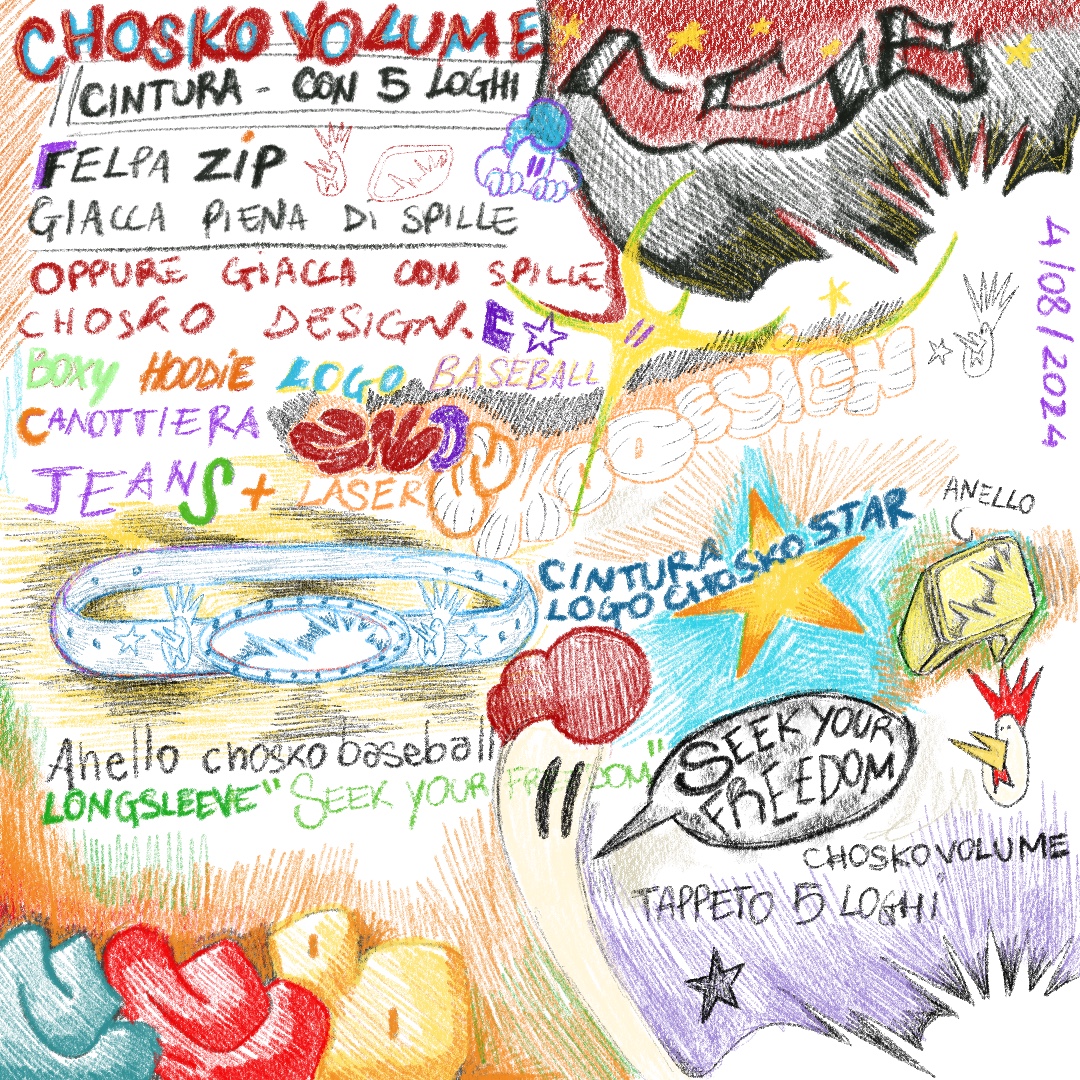 CHOSKO VOLUME
// CINTURA - CON 5 LOGHI
FELPA ZiP
GIACCA PiENA Di SPILLE
OPPURE GiACCA CON SPILLE
CHOSKO DESIGN. E
BOXY HOODiE LOGO BASEBALL
CANOTTIERA END
JEANS + LASER
DESIGN
4/08/2024
ANELLO
CINTURA STAR
LOGO CHOSKO
Anello chosko baseball
LONGSLEEVE "SEEK YOUR FREEDOM"
SEEK YOUR
FREEDOM
CHOSKOVOLUME
TAPPETO 5 LOGHI